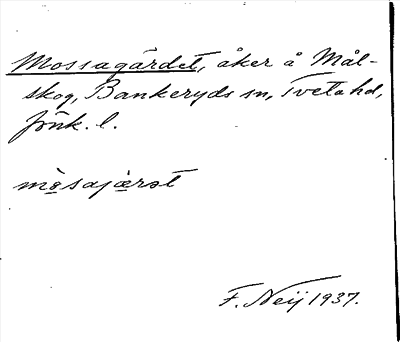 Mossagärdet, åker å Mål-
skog, Bankeryds sn, Tveta hd,
Jönk. l.
mo̲sajæ̲rət
F. Neij 1937.